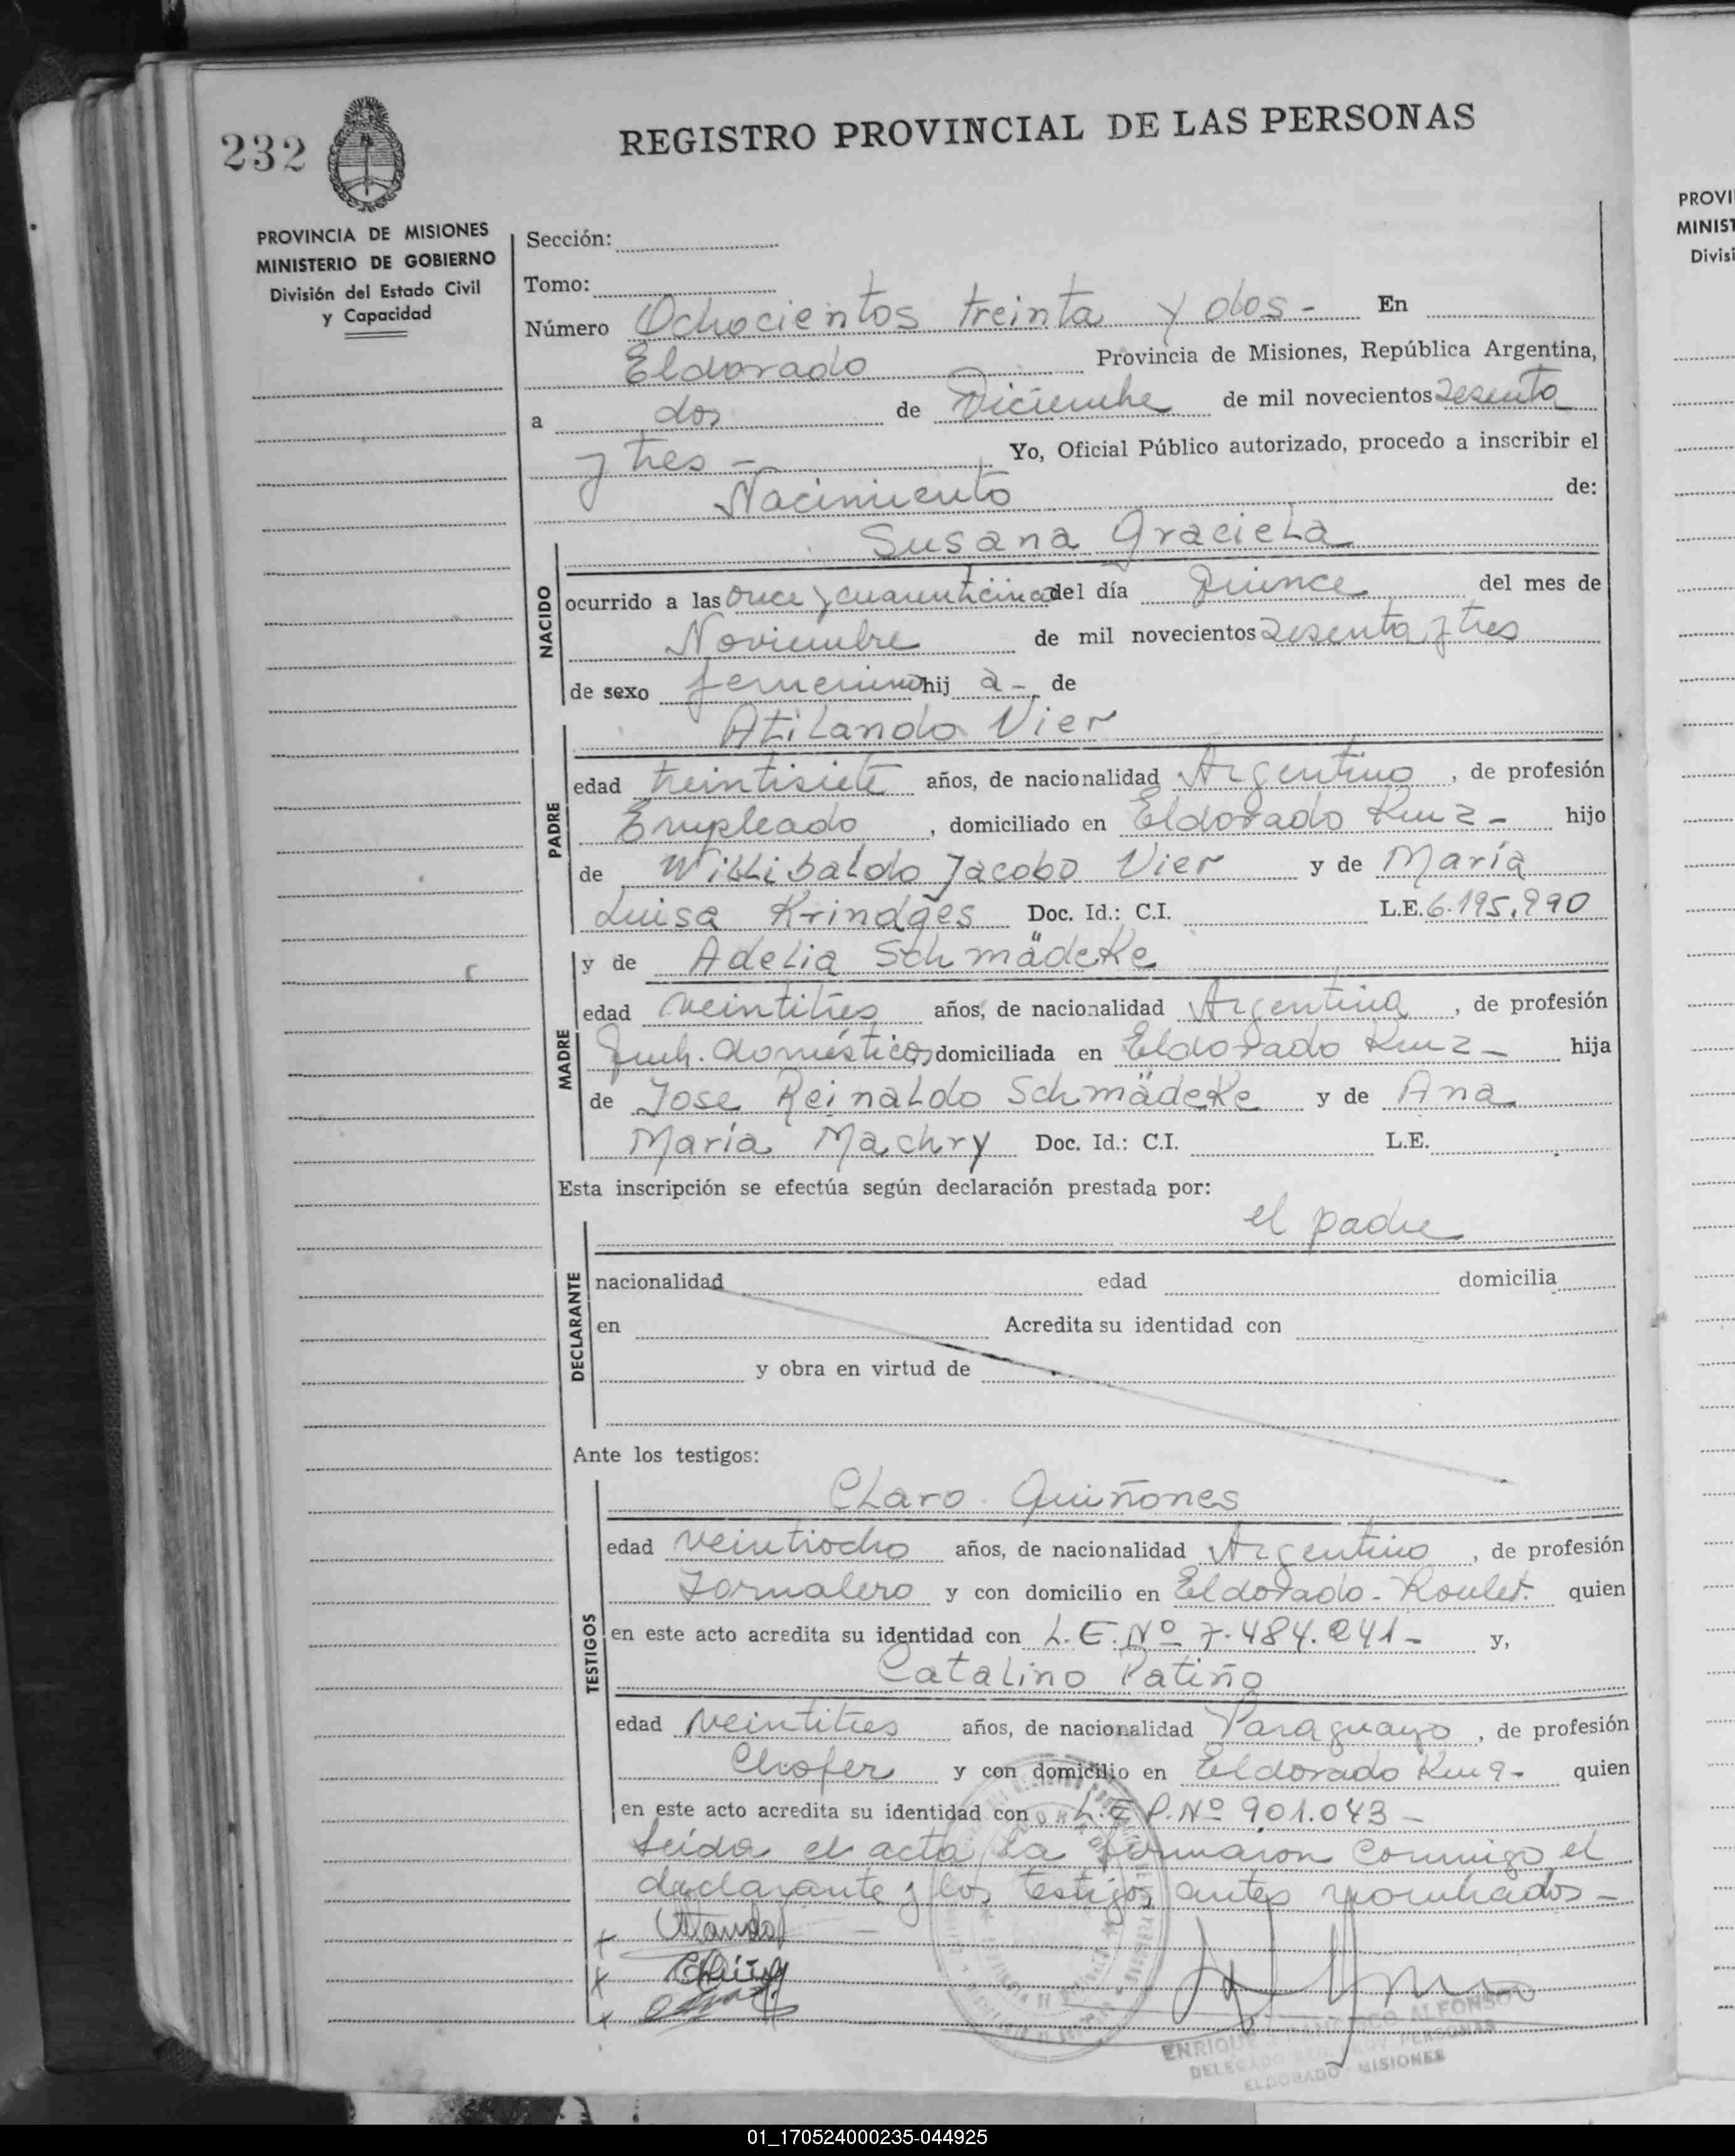 232
REGISTRO PROVINCIAL DE LAS PERSONAS
PROVINCIA DE MISIONES
MINISTERIO DE GOBIERNO
División del Estado Civil
y Capacidad
Sección:
Tomo:
Número Ochocientos treinta y dos - En
Eldorado Provincia de Misiones, República Argentina,
a dos de Diciembre de mil novecientos sesenta
y tres - Yo, Oficial Público autorizado, procedo a inscribir el
Nacimiento de:
Susana Graciela
NACIDO
ocurrido a las once y cuarenticinco del día Quince del mes de
Noviembre de mil novecientos sesenta y tres
de sexo femenino hij a - de
Atilando Vier
PADRE
edad treintisiete años, de nacionalidad Argentino, de profesión
Empleado, domiciliado en Eldorado Km 2 - hijo
de Willibaldo Jacobo Vier y de María
Luisa Krindges Doc. Id.: C.I. L.E. 6.195.990
y de Adelia Schmädeke
MADRE
edad veintitres años, de nacionalidad Argentina, de profesión
Queh. domésticos, domiciliada en Eldorado Km 2 - hija
de Jose Reinaldo Schmädeke y de Ana
María Machry Doc. Id.: C.I. L.E.
Esta inscripción se efectúa según declaración prestada por:
el padre
DECLARANTE
nacionalidad edad domicilia
en Acredita su identidad con
y obra en virtud de
Ante los testigos:
Claro Quiñones
TESTIGOS
edad veintiocho años, de nacionalidad Argentino, de profesión
Jornalero y con domicilio en Eldorado - quien
en este acto acredita su identidad con L.E. Nº 7.484.241 - y,
Catalino Patiño
edad veintitres años, de nacionalidad Paraguayo, de profesión
Chofer y con domicilio en Eldorado Km 9 - quien
en este acto acredita su identidad con Nº 901.043 -
Leida el acta la firmaron conmigo el
declarante y los testigos antes nombrados -
ENRIQUE FRANCISCO ALFONSO
DELEGADO REG. PROV. PERSONAS
ELDORADO - MISIONES
PROVI
MINIST
Divisi
01_170524000235-044925